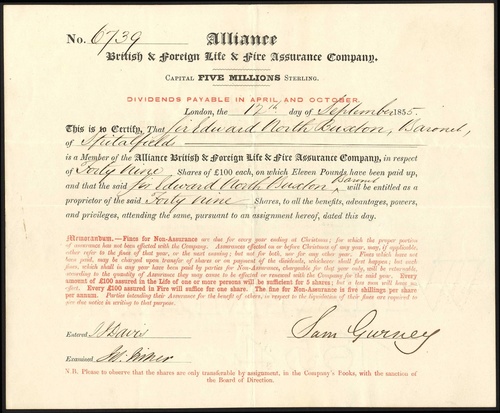 No. 6739 Alliance
British & Foreign Life & Fire Assurance Company.
Capital FIVE MILLIONS Sterling.
DIVIDENDS PAYABLE IN APRIL AND OCTOBER.
London, the 12th day of September 1855.
This is to Certify, That Sir Edward North Buxton, Baronet,
of Spitalfields
is a Member of the Alliance British & Foreign Life & Fire Assurance Company, in respect
of Forty Nine Shares of £100 each, on which Eleven Pounds have been paid up,
and that the said Sir Edward North Buxton Baronet will be entitled as a
proprietor of the said Forty nine Shares, to all the benefits, advantages, powers,
and privileges, attending the same, pursuant to an assignment hereof, dated this day.
Memorandum.—Fines for Non-Assurance are due for every year ending at Christmas; for which the proper portions
of assurance has not been effected with the Company. Assurances effected on or before Christmas of any year, may, if applicable,
either refer to the fines of that year, or the next ensuing; but not for both, nor for any other year. Fines which have not
been paid, may be charged upon transfer of shares or on payment of the dividends, whichever shall first happen; but such
fines, which shall in any year have been paid by parties for Non-Assurance, chargeable for that year only, will be returnable,
according to the quantity of Assurance they may cause to be effected or renewed with the Company for the said year. Every
amount of £100 assured in the Life of one or more persons will be sufficient for 5 shares; but a less sum will have no
effect. Every £100 assured in Fire will suffice for one share. The fine for Non-Assurance is five shillings per share
per annum. Parties intending their Assurance for the benefit of others, in respect to the liquidation of their fines are required to
give due notice in writing to that purport.
Entered J J Davis
Sam Gurney
Examined
N.B. Please to observe that the shares are only transferable by assignment, in the Company's Books, with the sanction of
the Board of Direction.